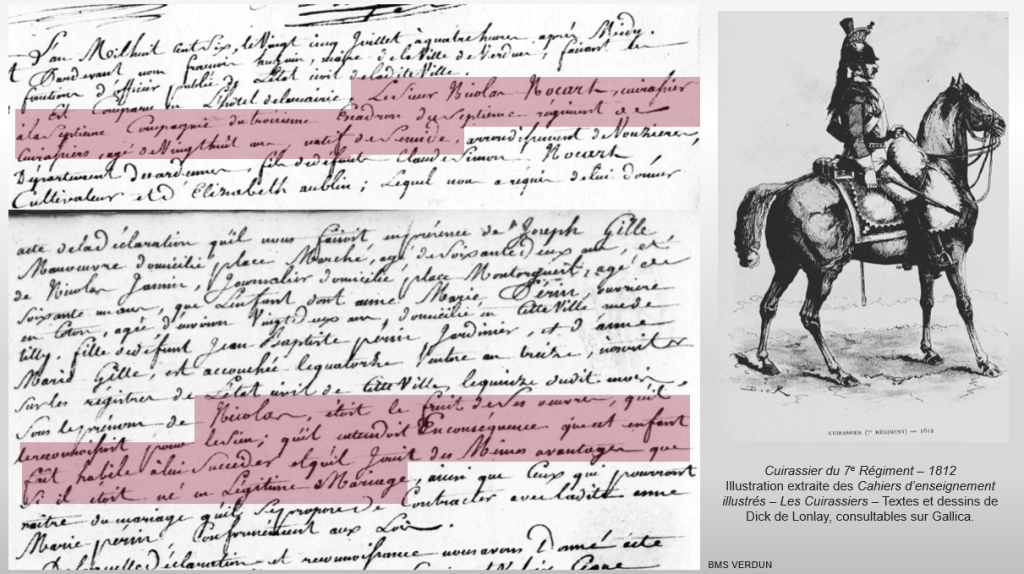 L'an Milhuit cent Six, le Vingt cinq Juillet à quatre heures après Midy.
Pardevant nous françois maire de la Ville de Verdun, faisant les
fonctions d'officier public de L'état civil de ladite Ville.
Est Comparu en L'hotel de la mairie, Le Sieur Nicolas Nocart, cuirassier
à la Septieme Compagnie du troisieme Escadron du Septieme régiment de
Cuirassiers, agé de Vingt huit ans natif de Semide, arrondissement de Vouzieres,
Département des ardennes, fils de défunt Claude Simon Nocart
Cultivateur et d'Elizabeth aublin ; Lequel nous a requis de lui donner
acte de la déclaration qu'il nous faisoit en présence de Joseph Gille
Manoeuvre domicilié place Marché, agé de Soixante deux ans, et
de Nicolas Jamin, Journalier domicilié place agé de
Soixante un ans, que L'enfant dont anne Marie Périn, ouvriere
en Coton, agée d'environ Vingt deux ans, domiciliée en Cette Ville
fille de défunt Jean Baptiste perin Jardinier, et d'anne
Marie Gille, est accouchée le quatorze Ventose an treize, inscrit
Sur les régistres de L'état civil de Cette Ville, le quinze dudit mois,
Sous le prénom de Nicolas, étoit le fruit de Ses oeuvres, qu'il
le reconnoissoit pour le Sien ; qu'il entendoit En conséquence que cet enfant
fût habile à lui Succéder et qu'il Jouit des Mêmes avantages que
S'il étoit né en Légitime Mariage, ainsi que Ceux qui pourront
naître du mariage qu'il Se propose de Contracter avec ladite anne
Marie perin, Conformément aux Loix.
De laquelle déclaration et reconnoissance nous avons Donné acte
Dick
CUIRASSIER (7e RÉGIMENT) — 1812
Cuirassier du 7e Régiment – 1812
Illustration extraite des Cahiers d'enseignement
illustrés – Les Cuirassiers – Textes et dessins de
Dick de Lonlay, consultables sur Gallica.
BMS VERDUN